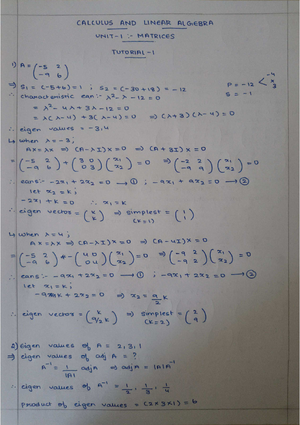 CALCULUS AND LINEAR ALGEBRA
UNIT-1 :- MATRICES
TUTORIAL-1
1) A = (-5 2
-9 6)
⇒ S1 = (-5+6) = 1 ; S2 = (-30+18) = -12
P = -12 < -4 × 3
S = -1
∴ characteristic eqn:- λ² - λ - 12 = 0
= λ² - 4λ + 3λ - 12 = 0
= λ(λ-4) + 3(λ-4) = 0 ⇒ (λ+3)(λ-4) = 0
∴ eigen values = -3, 4
↳ when λ = -3;
Ax = λx ⇒ (A-λI)x = 0 ⇒ (A+3I)x = 0
= (-5 2 -9 6) + (3 0 0 3)(x1 x2) = 0 ⇒ (-2 2 -9 9)(x1 x2) = 0
∴ eqns:- -2x1 + 2x2 = 0 → ① ; -9x1 + 9x2 = 0 → ②
let x2 = k;
-2x1 + k = 0 ∴ x1 = k
∴ eigen vector = (k k) ⇒ simplest (k=1) = (1 1)
↳ when λ = 4;
Ax = λx ⇒ (A-λI)x = 0 ⇒ (A-4I)x = 0
= (-5 2 -9 6) - (4 0 0 4)(x1 x2) = 0 ⇒ (-9 2 -9 2)(x1 x2) = 0
∴ eqns:- -9x1 + 2x2 = 0 → ① ; -9x1 + 2x2 = 0 → ②
let x1 = k;
-9k + 2x2 = 0 ⇒ x2 = 9/2 k
∴ eigen vector = (k 9/2 k) ⇒ simplest (k=2) = (2 9)
eigen values of A = 2, 3, 1
⇒ eigen values of adj A = ?
A⁻¹ = 1/|A| adj A ⇒ adj A = |A| A⁻¹
∴ eigen values of A⁻¹ = 1/2, 1/3, 1/1
product of eigen values = (2×3×1) = 6